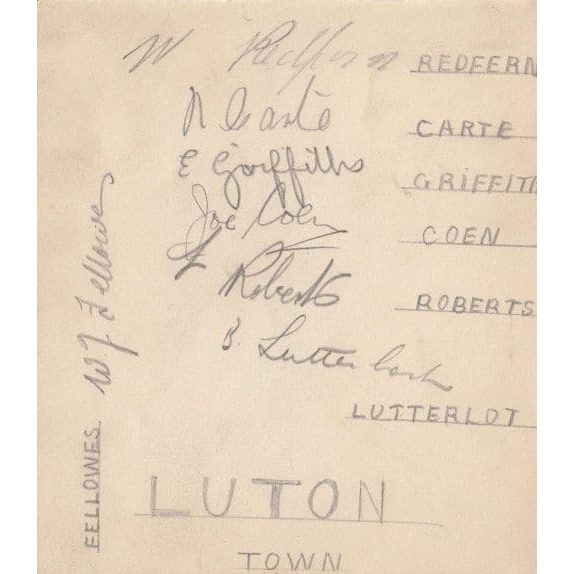 W Redfern REDFERN
R Carte CARTE
E Griffiths GRIFFITH
Joe Coen COEN
F Roberts ROBERTS
B Lutterloch LUTTERLOT
W J Fellowes FELLOWES
LUTON
TOWN